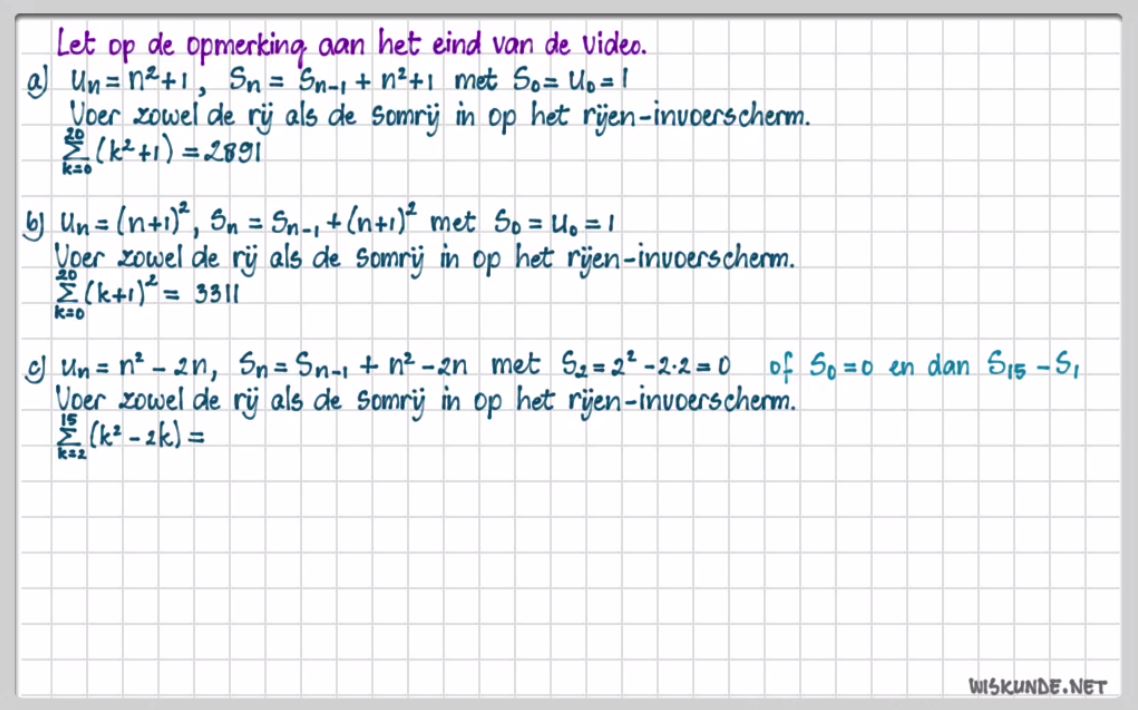 Let op de opmerking aan het eind van de video.
a) Uₙ = n² + 1, Sₙ = Sₙ₋₁ + n² + 1 met S₀ = U₀ = 1
Voer zowel de rij als de somrij in op het rijen-invoerscherm.
20
Σ (k² + 1) = 2891
k=0
b) Uₙ = (n+1)², Sₙ = Sₙ₋₁ + (n+1)² met S₀ = U₀ = 1
Voer zowel de rij als de somrij in op het rijen-invoerscherm.
20
Σ (k+1)² = 3311
k=0
c) Uₙ = n² - 2n, Sₙ = Sₙ₋₁ + n² - 2n met S₂ = 2² - 2·2 = 0 of S₀ = 0 en dan S₁₅ - S₁
Voer zowel de rij als de somrij in op het rijen-invoerscherm.
15
Σ (k² - 2k) =
k=2
WISKUNDE.NET